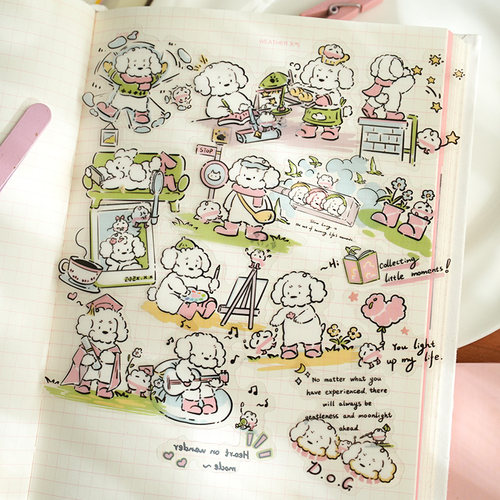 WEATHER
STOP
Hi
collecting
little moments!
You light
up my life.
No matter what you
have experienced, there
will always be
gentleness and moonlight
ahead
D.O.G
Heart on wander
mode~